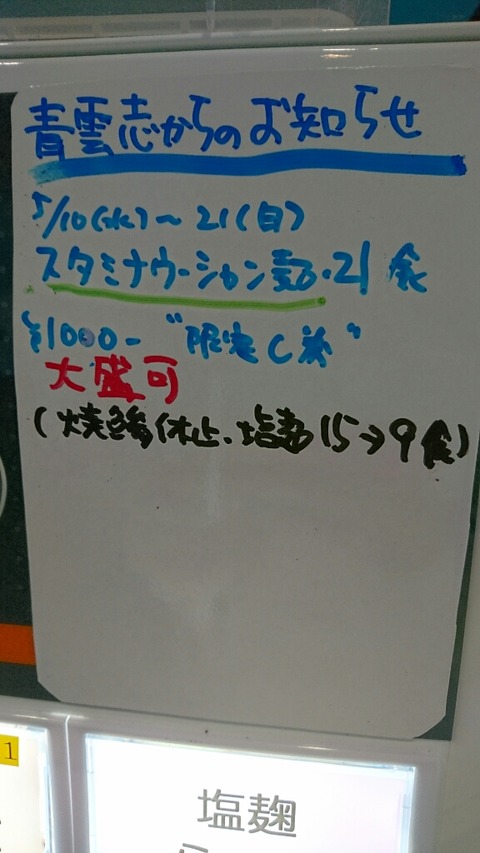 青雲志からのお知らせ
5/10(水)〜21(日)
スタミナウーション麺・21食
¥1000- "限定C券"
大盛可
(焼鶏休止、塩麹15→9食)
1
塩麹